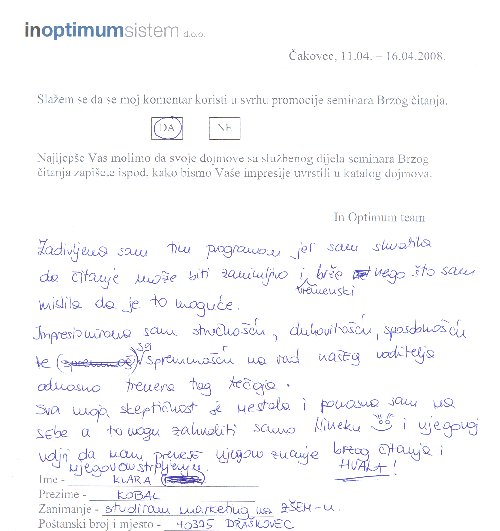 inoptimumsistem d.o.o.
Čakovec, 11.04. – 16.04.2008.
Slažem se da se moj komentar koristi u svrhu promocije seminara Brzog čitanja.
DA NE
Najljepše Vas molimo da svoje dojmove sa službenog dijela seminara Brzog
čitanja zapišete ispod, kako bismo Vaše impresije uvrstili u katalog dojmova.
In Optimum team
Zadivljena sam tim programom jer sam shvatila
da čitanje može biti zanimljivo i brže nego što sam
vremenski
mislila da je to moguće.
Impresionirana sam stručnošću, duhovitošću, sposobnošću
te spremnošću na rad našeg voditelja
odnosno trenera tog tečaja.
Sva moja skeptičnost je nestala i ponosna sam na
sebe a to mogu zahvaliti samo Nineku i njegovoj
volji da nam prenese njegovo znanje brzog čitanja i
njegovom strpljenju. HVALA!
Ime - KLARA
Prezime - KOBAL
Zanimanje - studiram marketing na ZŠEM-u
Poštanski broj i mjesto - 40325 DRAŠKOVEC